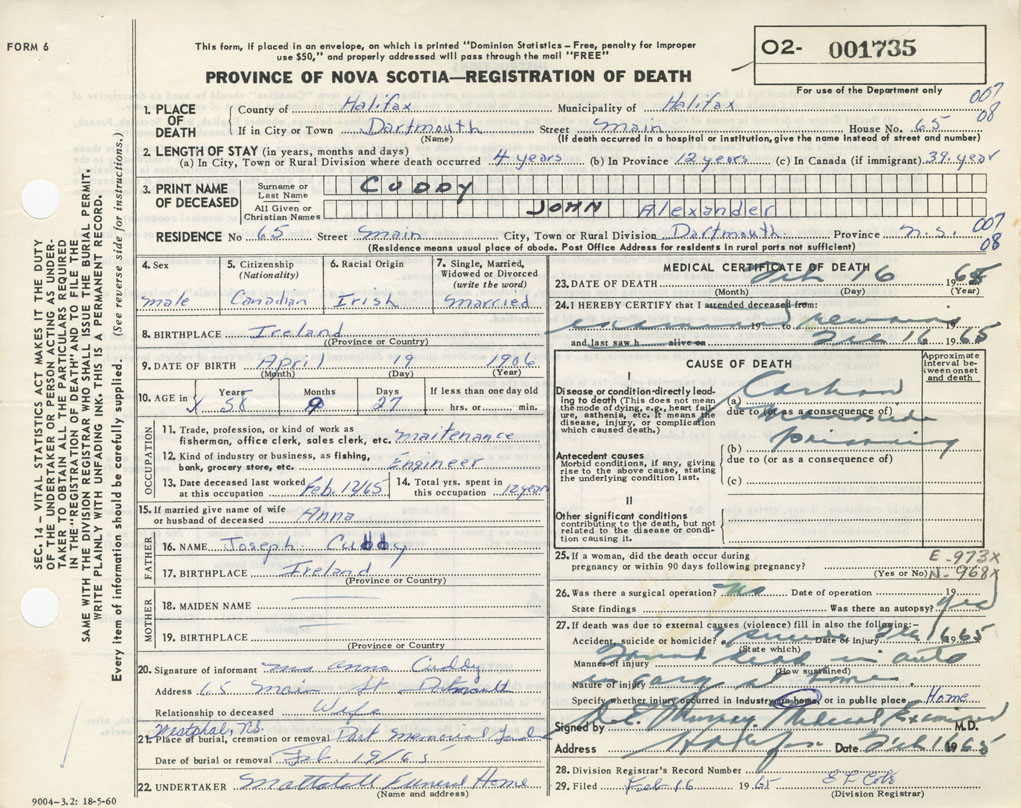 FORM 6
This form, if placed in an envelope, on which is printed "Dominion Statistics – Free, penalty for improper
use $50," and properly addressed will pass through the mail "FREE"
O2- 001735
PROVINCE OF NOVA SCOTIA—REGISTRATION OF DEATH
For use of the Department only
007
08
1. PLACE OF DEATH
County of Halifax Municipality of Halifax
If in City or Town Dartmouth Street Main House No. 65
(Name) (If death occurred in a hospital or institution, give the name instead of street and number)
2. LENGTH OF STAY (in years, months and days)
(a) In City, Town or Rural Division where death occurred 4 years (b) In Province 12 years (c) In Canada (if immigrant) 39 year
3. PRINT NAME OF DECEASED
Surname or Last Name CUDDY
All Given or Christian Names JOHN Alexander
RESIDENCE No 65 Street Main City, Town or Rural Division Dartmouth Province N.S.
007
08
(Residence means usual place of abode. Post Office Address for residents in rural parts not sufficient)
4. Sex male
5. Citizenship (Nationality) Canadian
6. Racial Origin Irish
7. Single, Married, Widowed or Divorced (write the word) Married
8. BIRTHPLACE Ireland
(Province or Country)
9. DATE OF BIRTH April 19 1906
(Month) (Day) (Year)
10. AGE in Years 58 Months 9 Days 27 If less than one day old hrs. or min.
OCCUPATION
11. Trade, profession, or kind of work as fisherman, office clerk, sales clerk, etc. maitenance
12. Kind of industry or business, as fishing, bank, grocery store, etc. Engineer
13. Date deceased last worked at this occupation Feb. 12/65
14. Total yrs. spent in this occupation 12 years
15. If married give name of wife or husband of deceased Anna
FATHER
16. NAME Joseph Cuddy
17. BIRTHPLACE Ireland
(Province or Country)
MOTHER
18. MAIDEN NAME
19. BIRTHPLACE
(Province or Country)
20. Signature of informant Mrs Anna Cuddy
Address 65 Main St
Relationship to deceased Wife
Westphal, N.S.
21. Place of burial, cremation or removal Dart Memorial
Date of burial or removal Feb. 19/65
22. UNDERTAKER Mattatall Funeral Home
(Name and address)
9004-3.2: 18-5-60
MEDICAL CERTIFICATE OF DEATH
23. DATE OF DEATH Feb 16 1965
(Month) (Day) (Year)
24. I HEREBY CERTIFY that I attended deceased from:
examined remains
19 19
and last saw h alive on Feb 16 1965
CAUSE OF DEATH
Approximate interval between onset and death
I
Disease or condition directly leading to death (This does not mean the mode of dying, e.g., heart failure, asthenia, etc. It means the disease, injury, or complication which caused death.)
(a) Carbon
due to (or as a consequence of) Monoxide
poisoning
(b)
due to (or as a consequence of)
(c)
Antecedent causes
Morbid conditions, if any, giving rise to the above cause, stating the underlying condition last.
II
Other significant conditions
contributing to the death, but not related to the disease or condition causing it.
25. If a woman, did the death occur during pregnancy or within 90 days following pregnancy?
(Yes or No)
E-973X
N-968X
26. Was there a surgical operation? No Date of operation 19
State findings Was there an autopsy? yes
27. If death was due to external causes (violence) fill in also the following:-
Accident, suicide or homicide? suicide Date of Injury Feb 16 1965
(State which)
Manner of injury Found dead in auto
(How sustained)
Nature of injury in garage at home
Specify whether injury occurred in Industry, in home, or in public place Home
Signed by Murray Medical Examiner M.D.
Address Halifax Date Feb 16 1965
28. Division Registrar's Record Number
29. Filed Feb 16 1965
(Division Registrar)
SEC. 14 – VITAL STATISTICS ACT MAKES IT THE DUTY
OF THE UNDERTAKER OR PERSON ACTING AS UNDER-
TAKER TO OBTAIN ALL THE PARTICULARS REQUIRED
IN THE "REGISTRATION OF DEATH" AND TO FILE THE
SAME WITH THE DIVISION REGISTRAR WHO SHALL ISSUE THE BURIAL PERMIT.
WRITE PLAINLY WITH UNFADING INK. THIS IS A PERMANENT RECORD.
Every item of information should be carefully supplied. (See reverse side for instructions.)